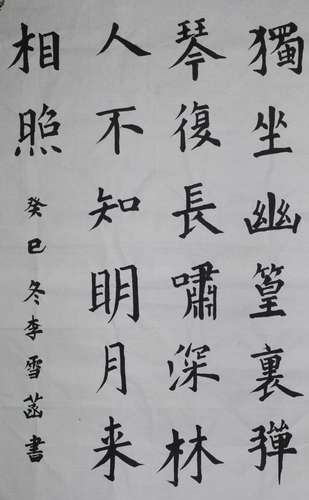 獨坐幽篁裏彈
琴復長嘯深林
人不知明月来
相照
癸巳冬李雪菡書